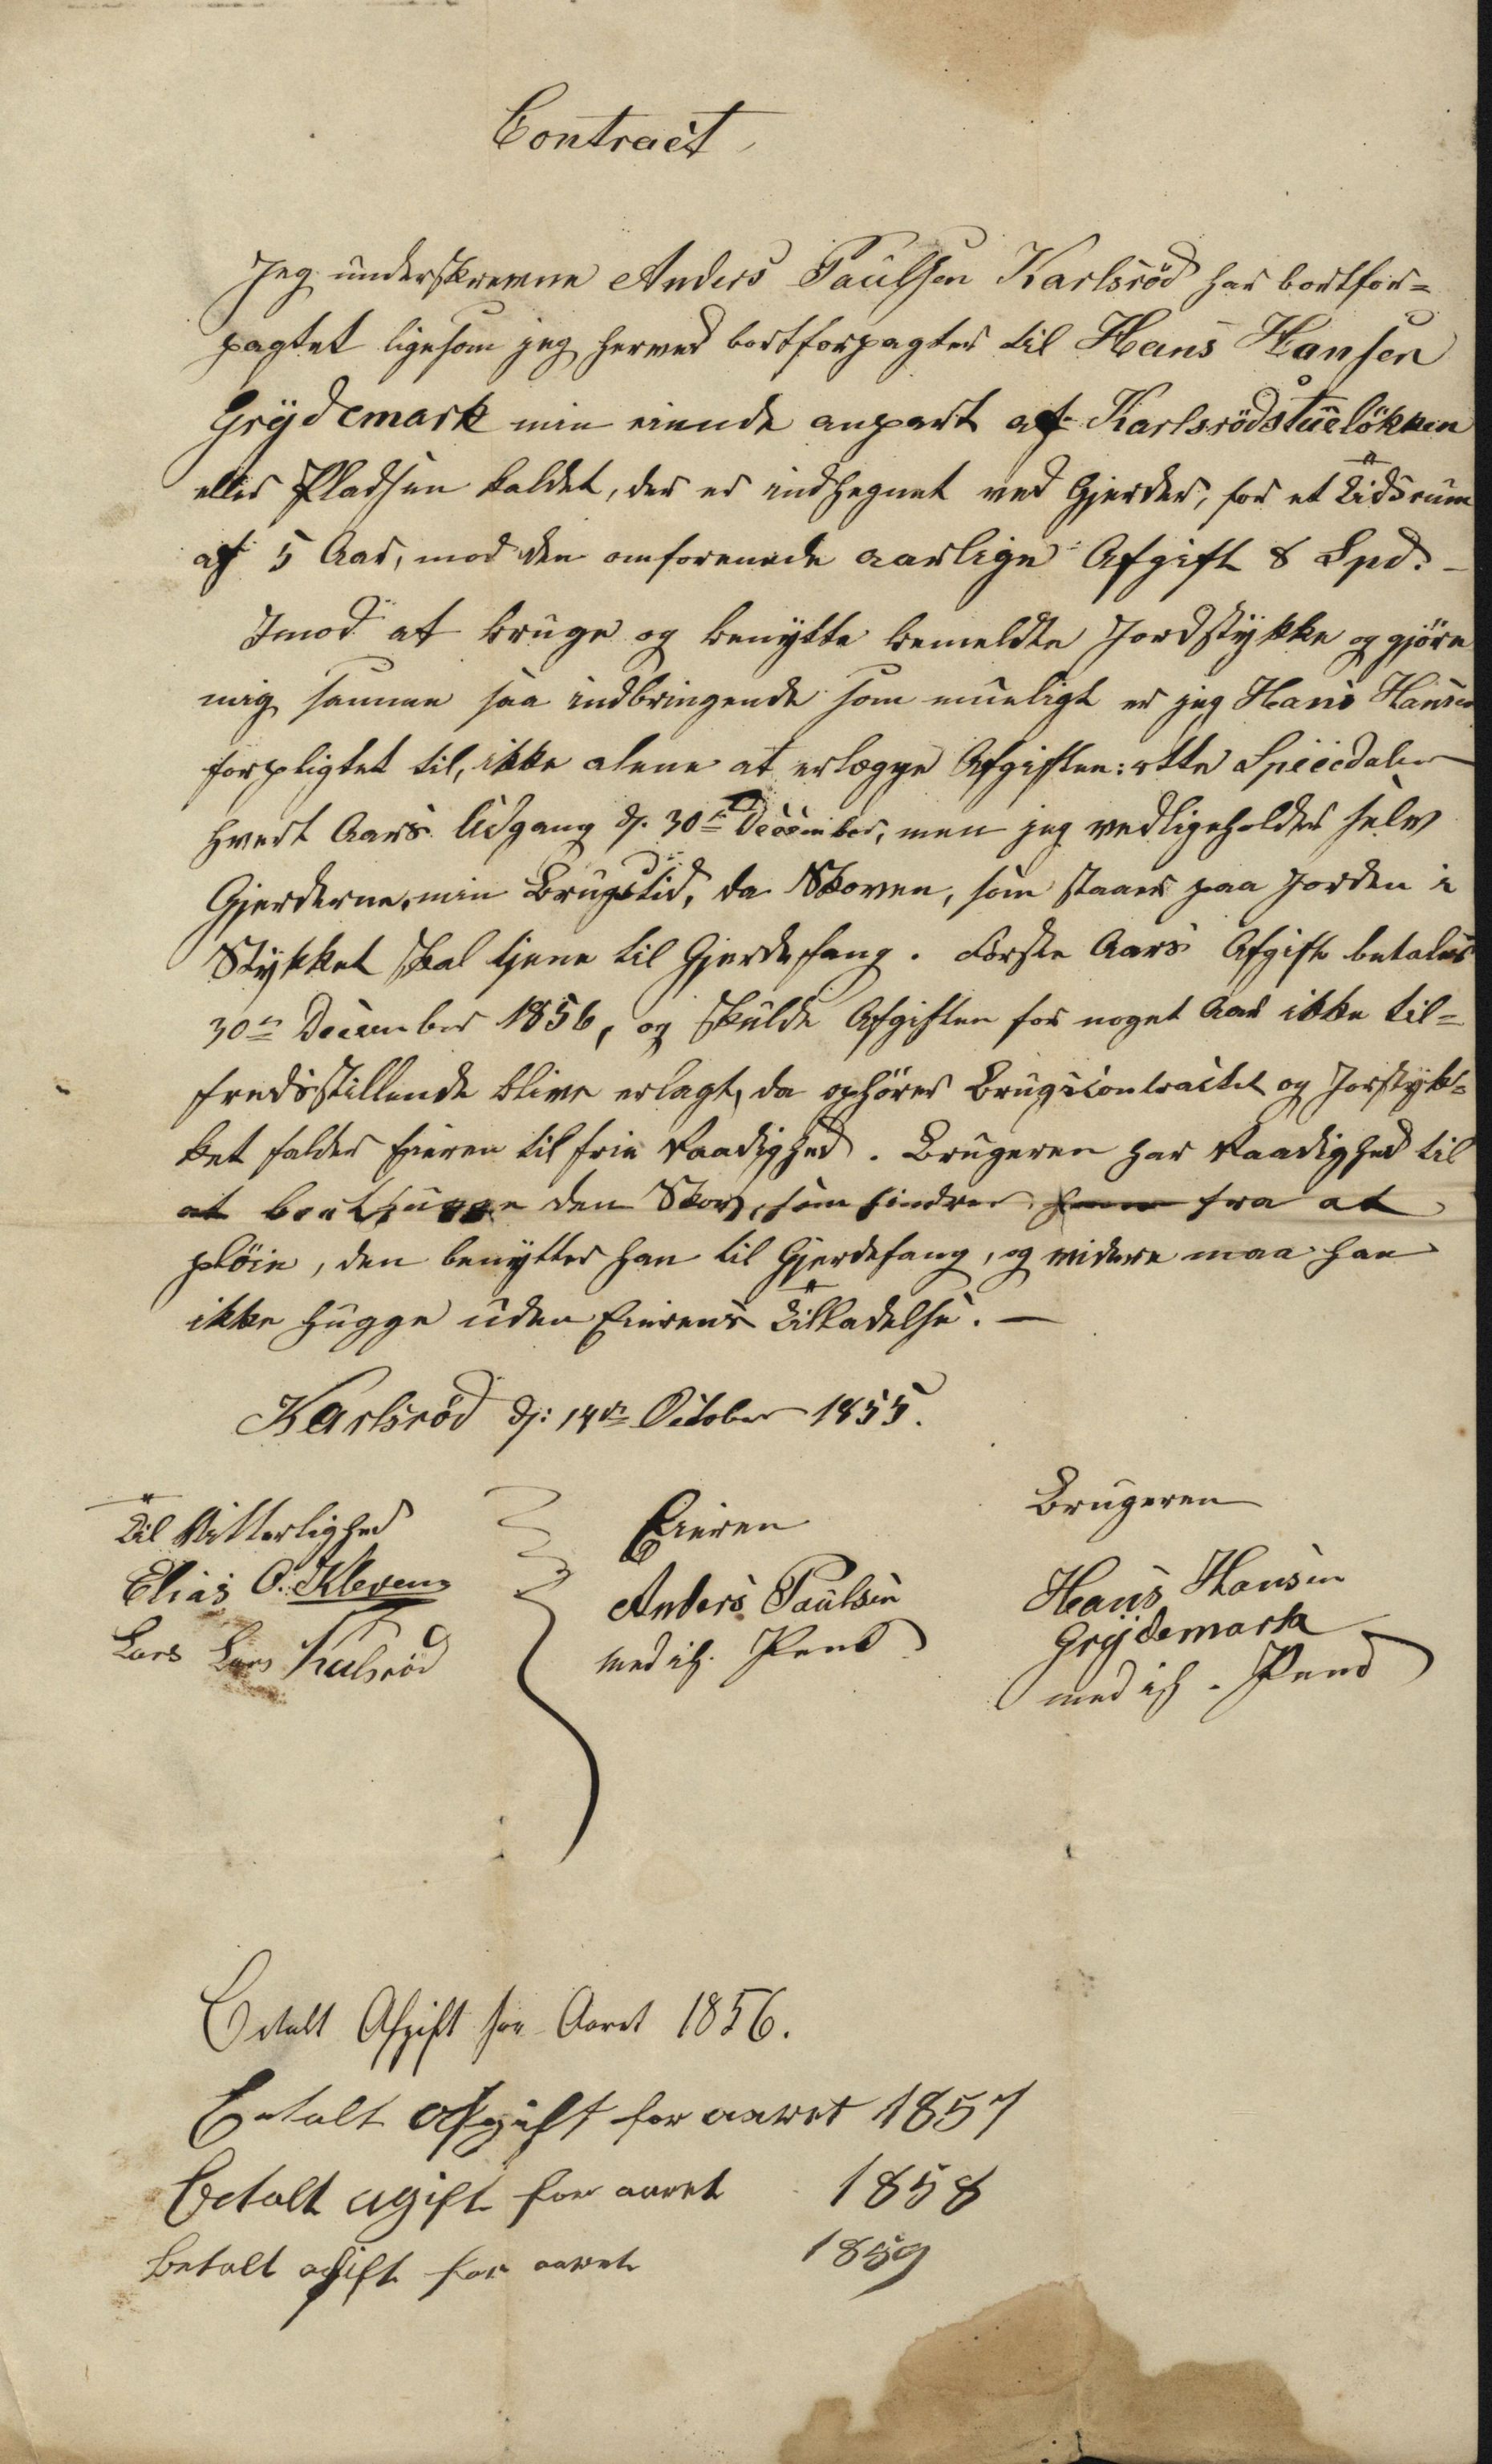 Contract
Jeg underskrevne Anders Paulsen Karlsröd har bortfor=
pagtet ligesom jeg herved bortforpagter til Hans Hansen
Grydemark min eiende anpart af Karlsrödstueløkken
eller Pladsen kaldet, der er indhegnet ved Gjerder, for et Tidsrum
af 5 Aar, mod den omforenede aarlige Afgift 8 Spd. –
Imod at bruge og benytte bemeldte Jordstykke og gjöre
mig samme saa indbringende som mueligt er jeg Hans Hansen
forpligtet til, ikke alene at erlægge Afgiften: otte Speciedaler
hvert Aars Udgang d. 30te December, men jeg vedligeholder selv
Gjerderne, min Brugstid, da Skoven, som staaer paa Jorden i
Stykket skal tjene til Gjerdefang. Förste Aars Afgift betales
30te December 1856, og skulde Afgiften for noget Aar ikke til=
fredsstillende blive erlagt, da ophörer Brugscontractet og Jorstyk=
ket falder Eieren til frie Raadighed. Brugeren har Raadighed til
at borthugge den Skov, som hindrer ham fra at
plöie, den benytter han til Gjerdefang, og videre maa han
ikke hugge uden Eierens Tilladelse. —
Karlsröd d: 14de October 1855.
Til Vitterlighed
Elias O. Kleven
Lars Lars Kulsröd
Eieren
Anders Paulsen
med ih. Pend
Brugeren
Hans Hansen
Grydemark
med ih. Pend
Betalt Afgift for Aaret 1856.
Betalt afgift for aaret 1857
Betalt agift for aaret 1858
betalt afift for aaret 1859